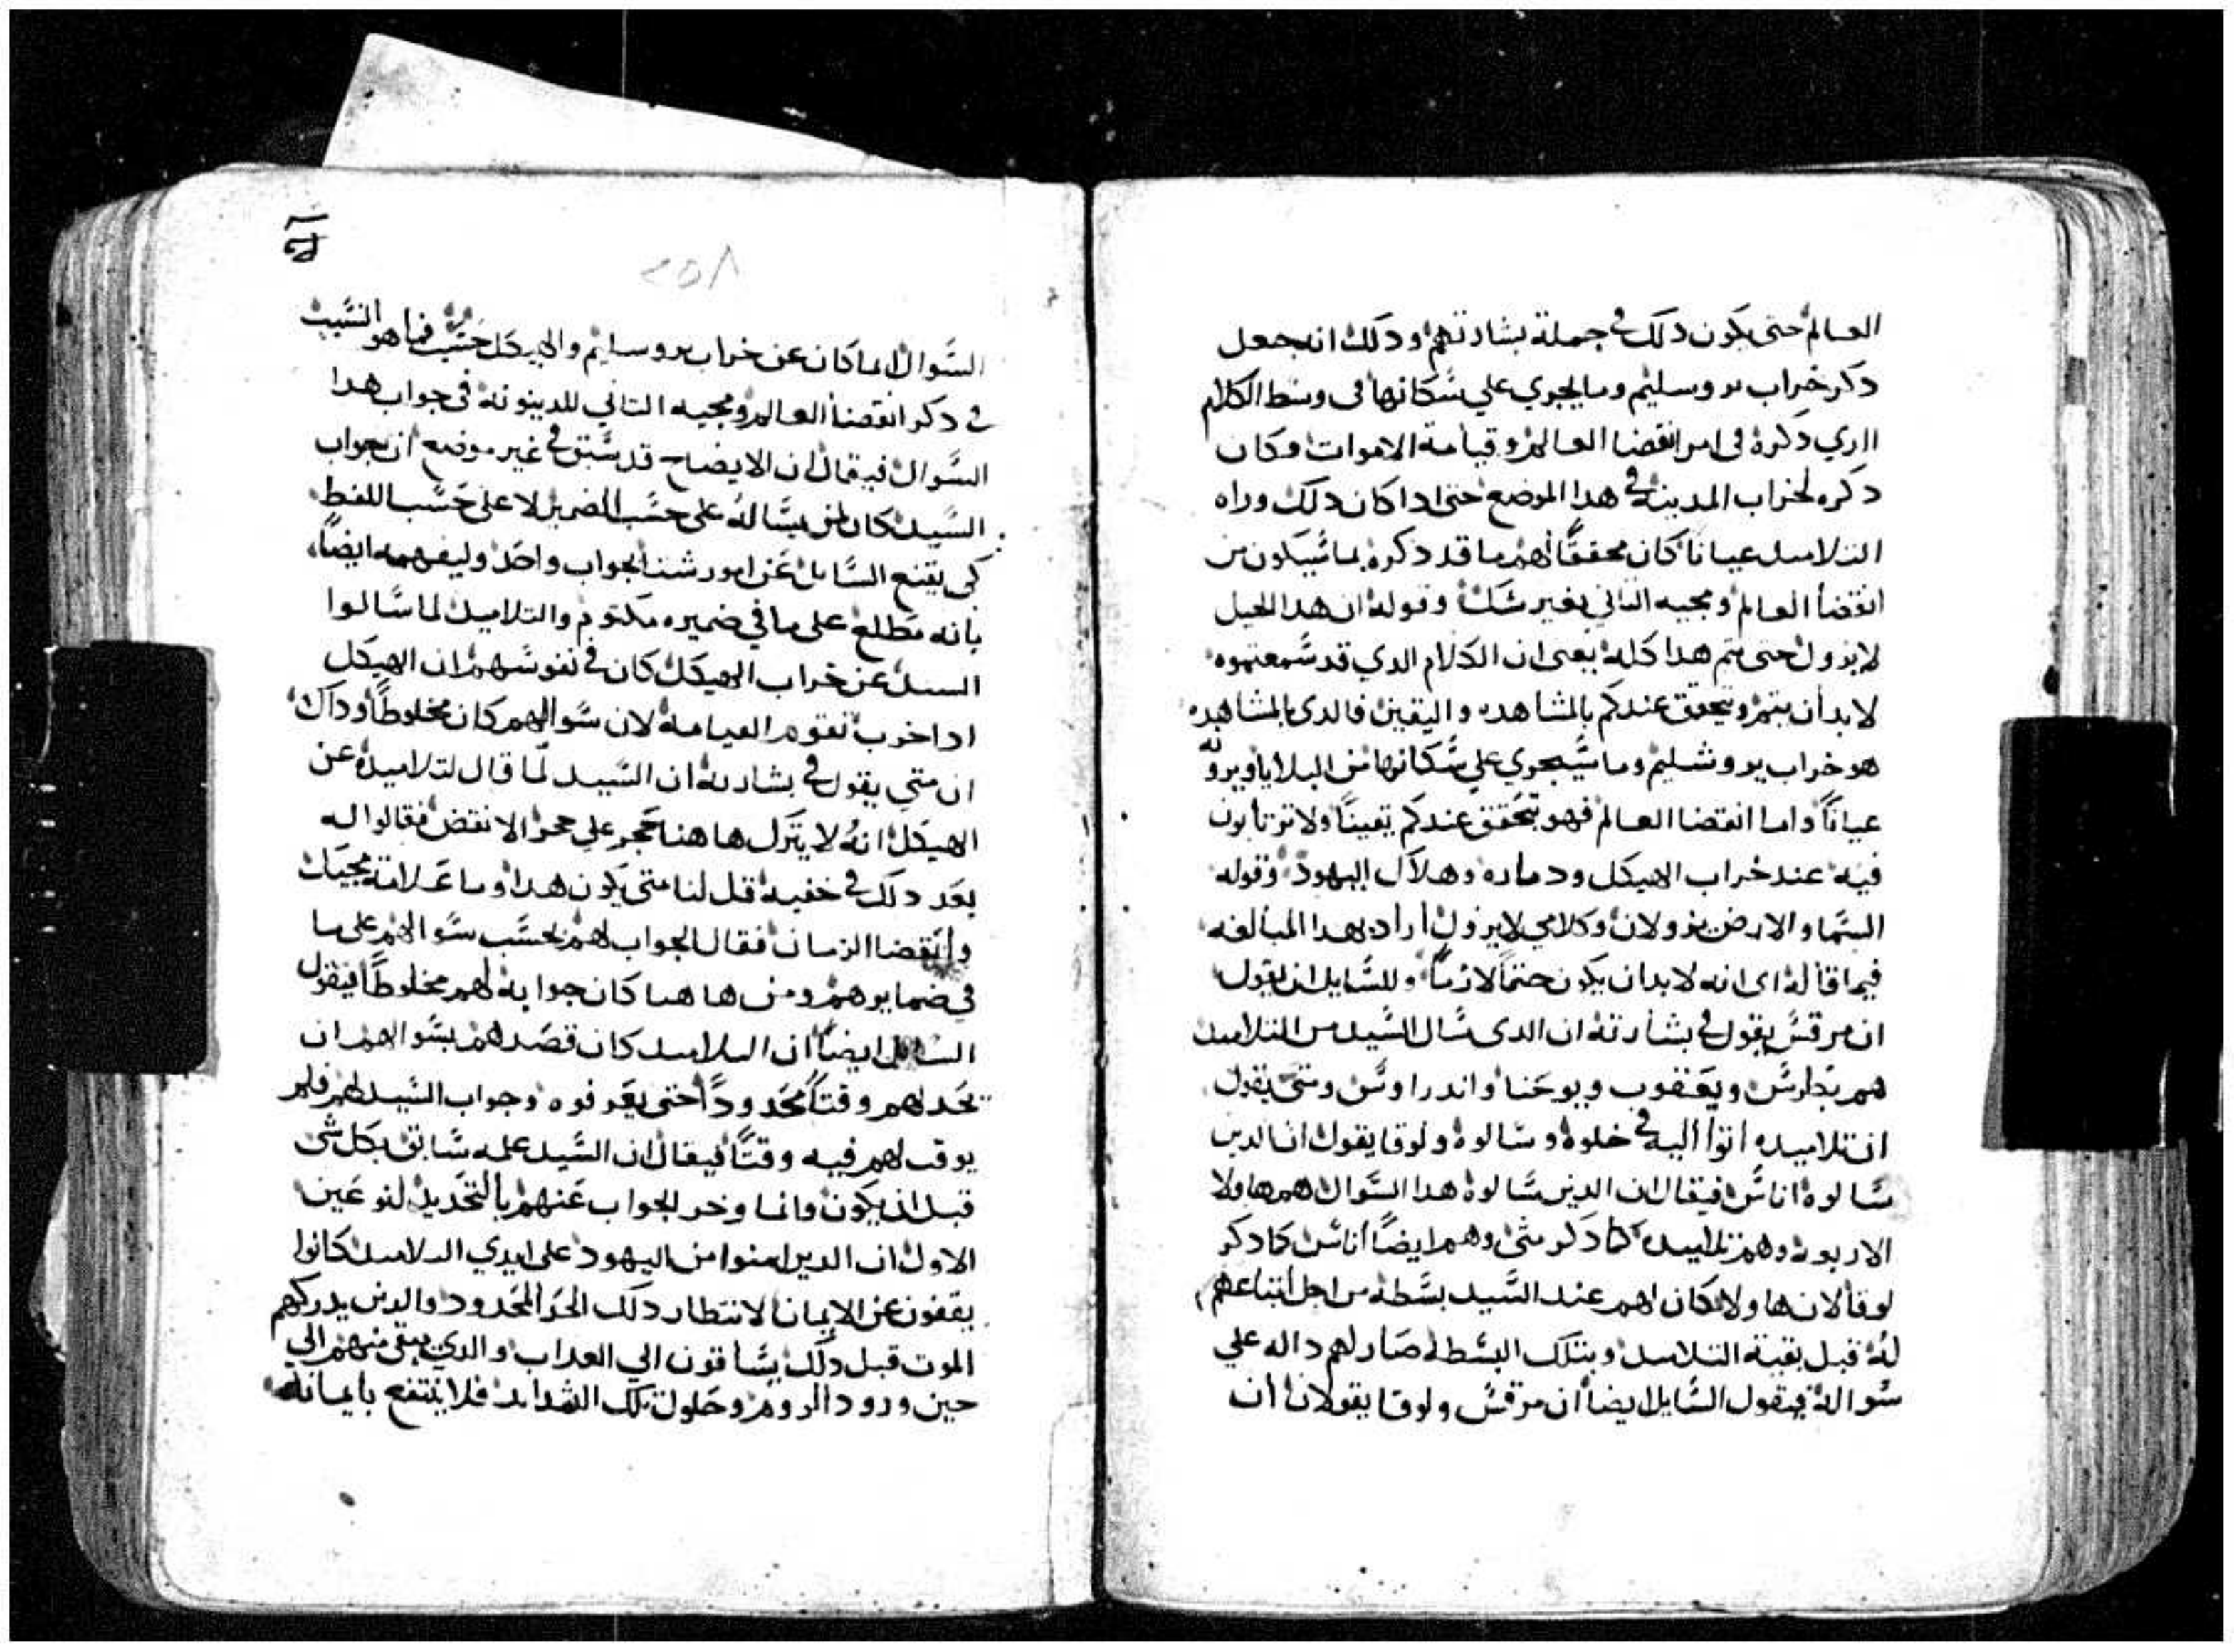 العالم حتى يكون دلك في جملة بشارتهم ودلك انه جعل
دكر خراب يروسليم وما يجري علي سكانها في وسط الكلام
الدي دكره في امر انقضا العالم وقيامة الاموات وكان
دكره لخراب المدينة في هدا الموضع حتى ادا كان دلك وراه
التلاميد عيانا كان محققًا لهم ما قد دكره بما سيكون من
انقضا العالم ومجيه التاني بغير شك وقوله ان هدا الجيل
لا يزول حتى يتم هدا كله يعني ان الكلام الدي قد سمعتموه
لا بد ان يتم ويتحقق عندكم بالمشاهده واليقين فالدي بالمشاهده
هو خراب يروشليم وما سيجري علي سكانها من البلايا ويرونه
عيانًا واما انقضا العالم فهو يتحقق عندكم يقينًا ولا ترتابون
فيه عند خراب الهيكل ودماره وهلاك اليهود وقوله
السما والارض يزولان وكلامي لا يزول اراد بهدا المبالغه
فيما قاله اي انه لا بد ان يكون حتمًا لازمًا وللسايل ان يقول
ان مرقس يقول في بشارته ان الدي سال السيد من التلاميد
هم بطرس ويعقوب ويوحنا واندراوس ومتى يقول
ان تلاميده اتوا اليه في خلوه وسالوه ولوقا يقول ان الدين
سالوه اناس فيقال ان الدين سالوه هدا السوال هم هاولا
الاربعه وهم تلاميده كما دكر متى وهم ايضًا اناس كما دكر
لوقا لان هاولا كان لهم عند السيد بسطة من اجل اتباعهم
له قبل بقية التلاميد وبتلك البسطة صار لهم داله علي
سواله فيقول السايل ايضا ان مرقس ولوقا يقولان ان
٢٥٨
السوال انما كان عن خراب يروسليم والهيكل حسب فما هو السبب
في دكر انقضا العالم ومجيه التاني للدينونه في جواب هدا
السوال فيقال ان الايضاح قد سبق في غير موضع ان جواب
السيد كان لمن يساله على حسب الضمير لا على حسب اللفظ
كي يقنع السايل عن امور شتا بجواب واحد وليفهمه ايضًا
بانه مطلع على ما في ضميره مكتوم والتلاميد لما سالوا
السيد عن خراب الهيكل كان في نفوسهم ان الهيكل
ادا خرب تقوم القيامه لان سوالهم كان مخلوطًا وداك
ان متي يقول في بشارته ان السيد لما قال لتلاميده عن
الهيكل انه لا يترك هاهنا حجر علي حجر الا نقض فقالوا له
بعد دلك في خفيه قل لنا متى يكون هدا وما علامة مجيك
وانقضا الزمان فقال الجواب لهم بحسب سوالهم على ما
في ضمايرهم ومن هاهنا كان جوابه لهم مخلوطًا فيقول
السايل ايضًا ان التلاميد كان قصدهم بسوالهم ان
يحد لهم وقتًا محدودًا حتى يعرفوه وجواب السيد لهم فلم
يوقت لهم فيه وقتًا فيقال ان السيد علمه سابق بكل شي
قبل ان يكون وانما وخر الجواب عنهم بالتحديد لنوعين
الاول ان الدين امنوا من اليهود على ايدي التلاميد كانوا
يقفون عن الايمان لانتظار دلك الحد المحدود والدين يدركهم
الموت قبل دلك يساقون الي العداب والدي يبقى منهم الي
حين ورود الروم وحلول تلك الشدايد فلا ينتفع بايمانه